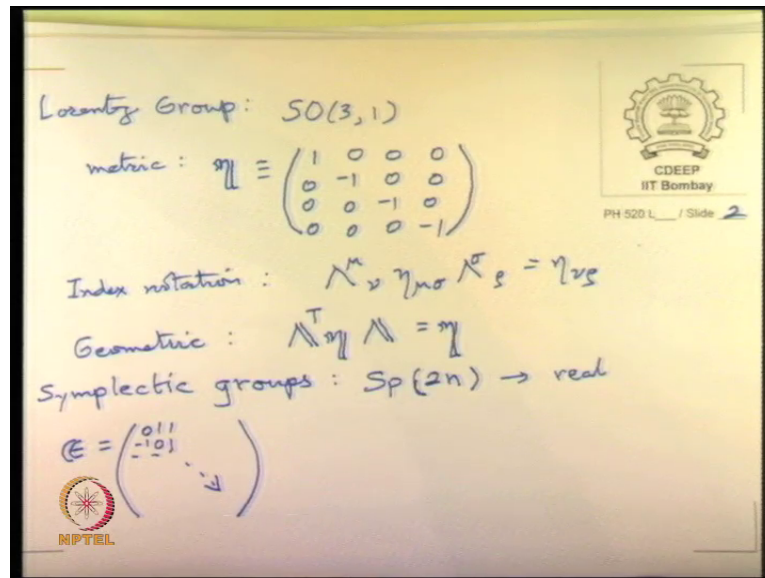 Lorentz Group: SO(3,1)
metric: η ≡ ( 1 0 0 0
0 -1 0 0
0 0 -1 0
0 0 0 -1 )
CDEEP
IIT Bombay
PH 520 L___ / Slide 2
Index notation: Λ^μ_ν η_μσ Λ^σ_ρ = η_νρ
Geometric: Λ^T η Λ = η
Symplectic groups: Sp(2n) → real
ϵ = ( 0 1
-1 0 )
NPTEL